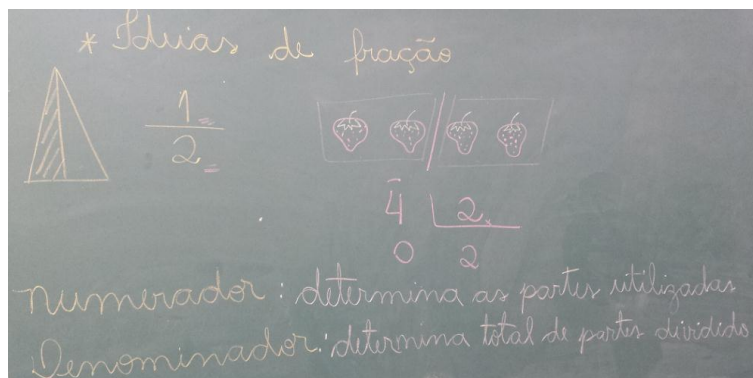 * Ideias de fração
1
2
4 2
0 2
numerador: determina as partes utilizadas
Denominador: determina total de partes dividido